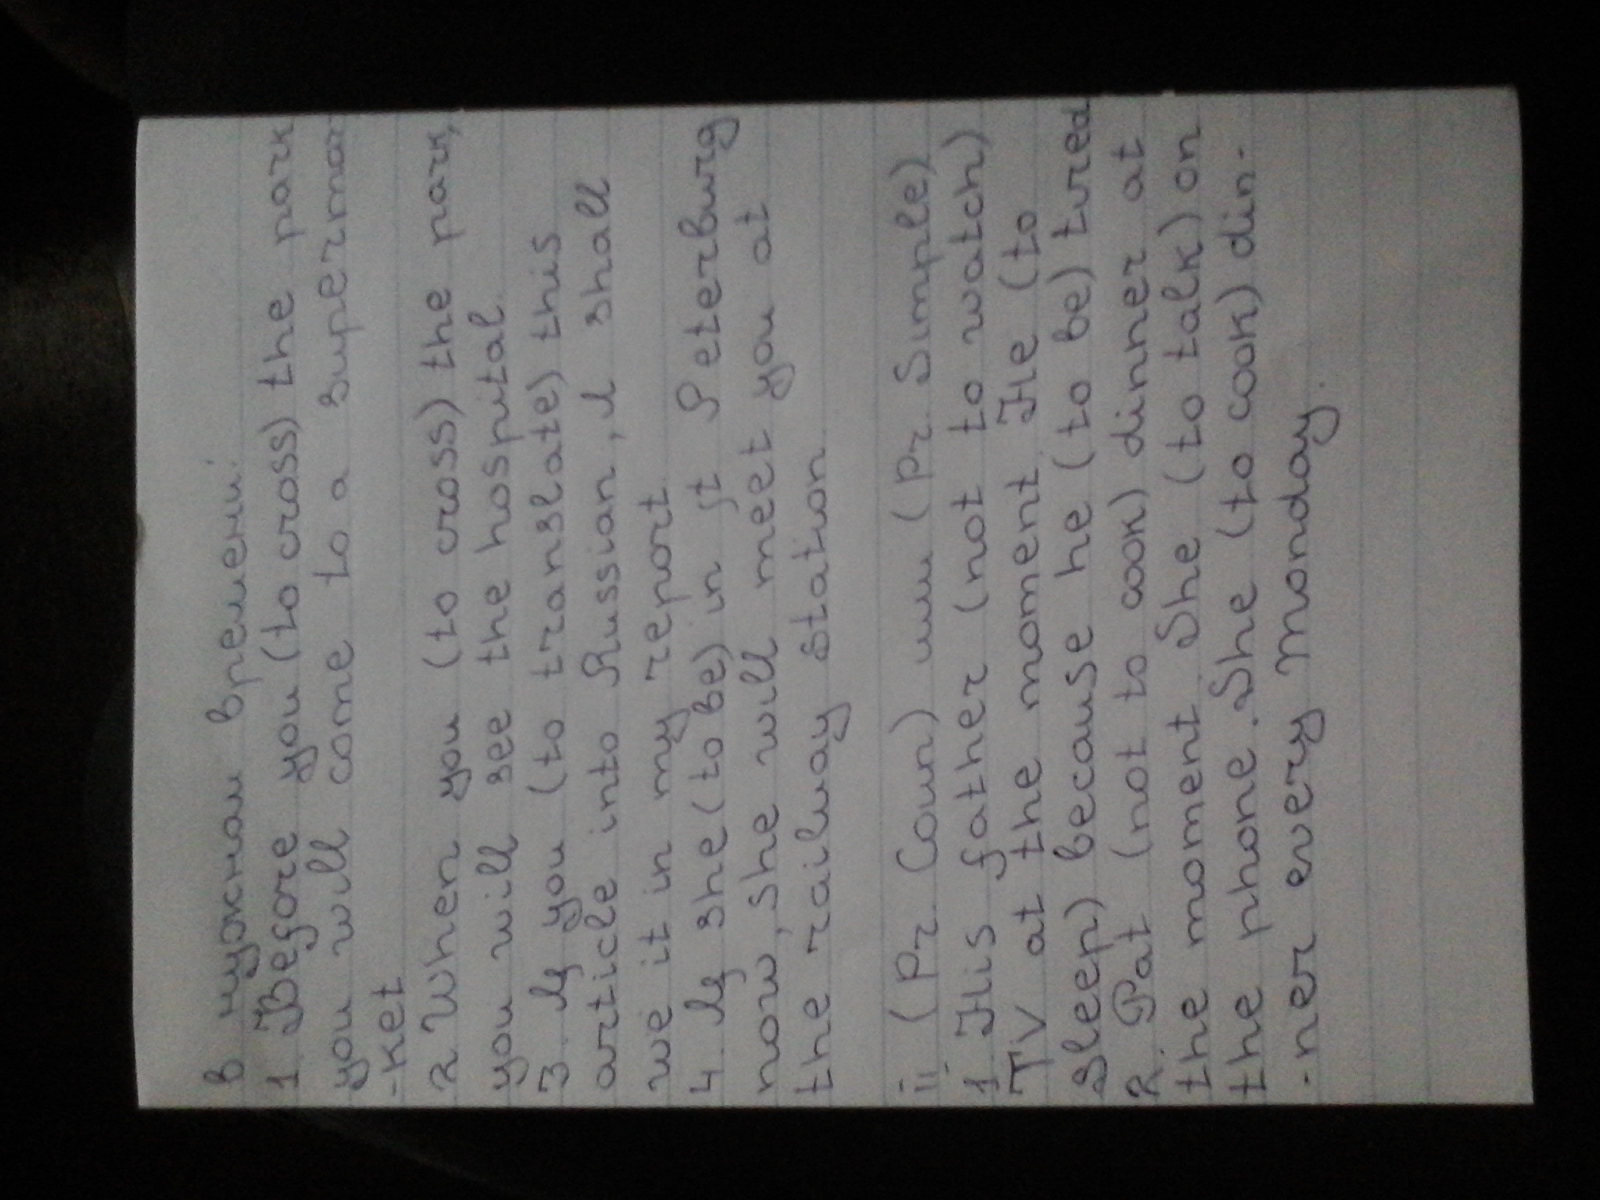 в нужном времени:
1. Before you (to cross) the park
you will come to a supermar
-ket
2 When you (to cross) the park,
you will see the hospital
3. If you (to translate) this
article into Russian, I shall
use it in my report
4. If she (to be) in St Peterburg
now, she will meet you at
the railway station
ii (Pr. Coun) или (Pr. Simple)
1 His father (not to watch)
TV at the moment. He (to
sleep) because he (to be) tured
2. Pat (not to cook) dinner at
the moment. She (to talk) on
the phone. She (to cook) din-
-ner every Monday.